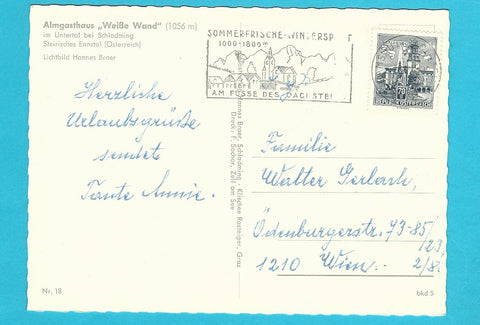 Almgasthaus „Weiße Wand" (1056 m)
im Untertal bei Schladming
Steirisches Ennstal (Österreich)
Lichtbild Hannes Broer
SOMMERFRISCHE-WINTERSP T
1000-1800m
AM FUSSE DES DACHSTEI
REPUBLIK ÖSTERREICH
Herzliche
Urlaubsgrüße
sendet
Tante Annie.
Hannes Broer, Schladming · Klischee Rasteiger, Graz
Druck: F. Sochor, Zell am See
Familie
Walter Gerlach,
Ödenburgerstr. 73-85/
/23,
1210 Wien. 2/8.
Nr. 18
bkd 5